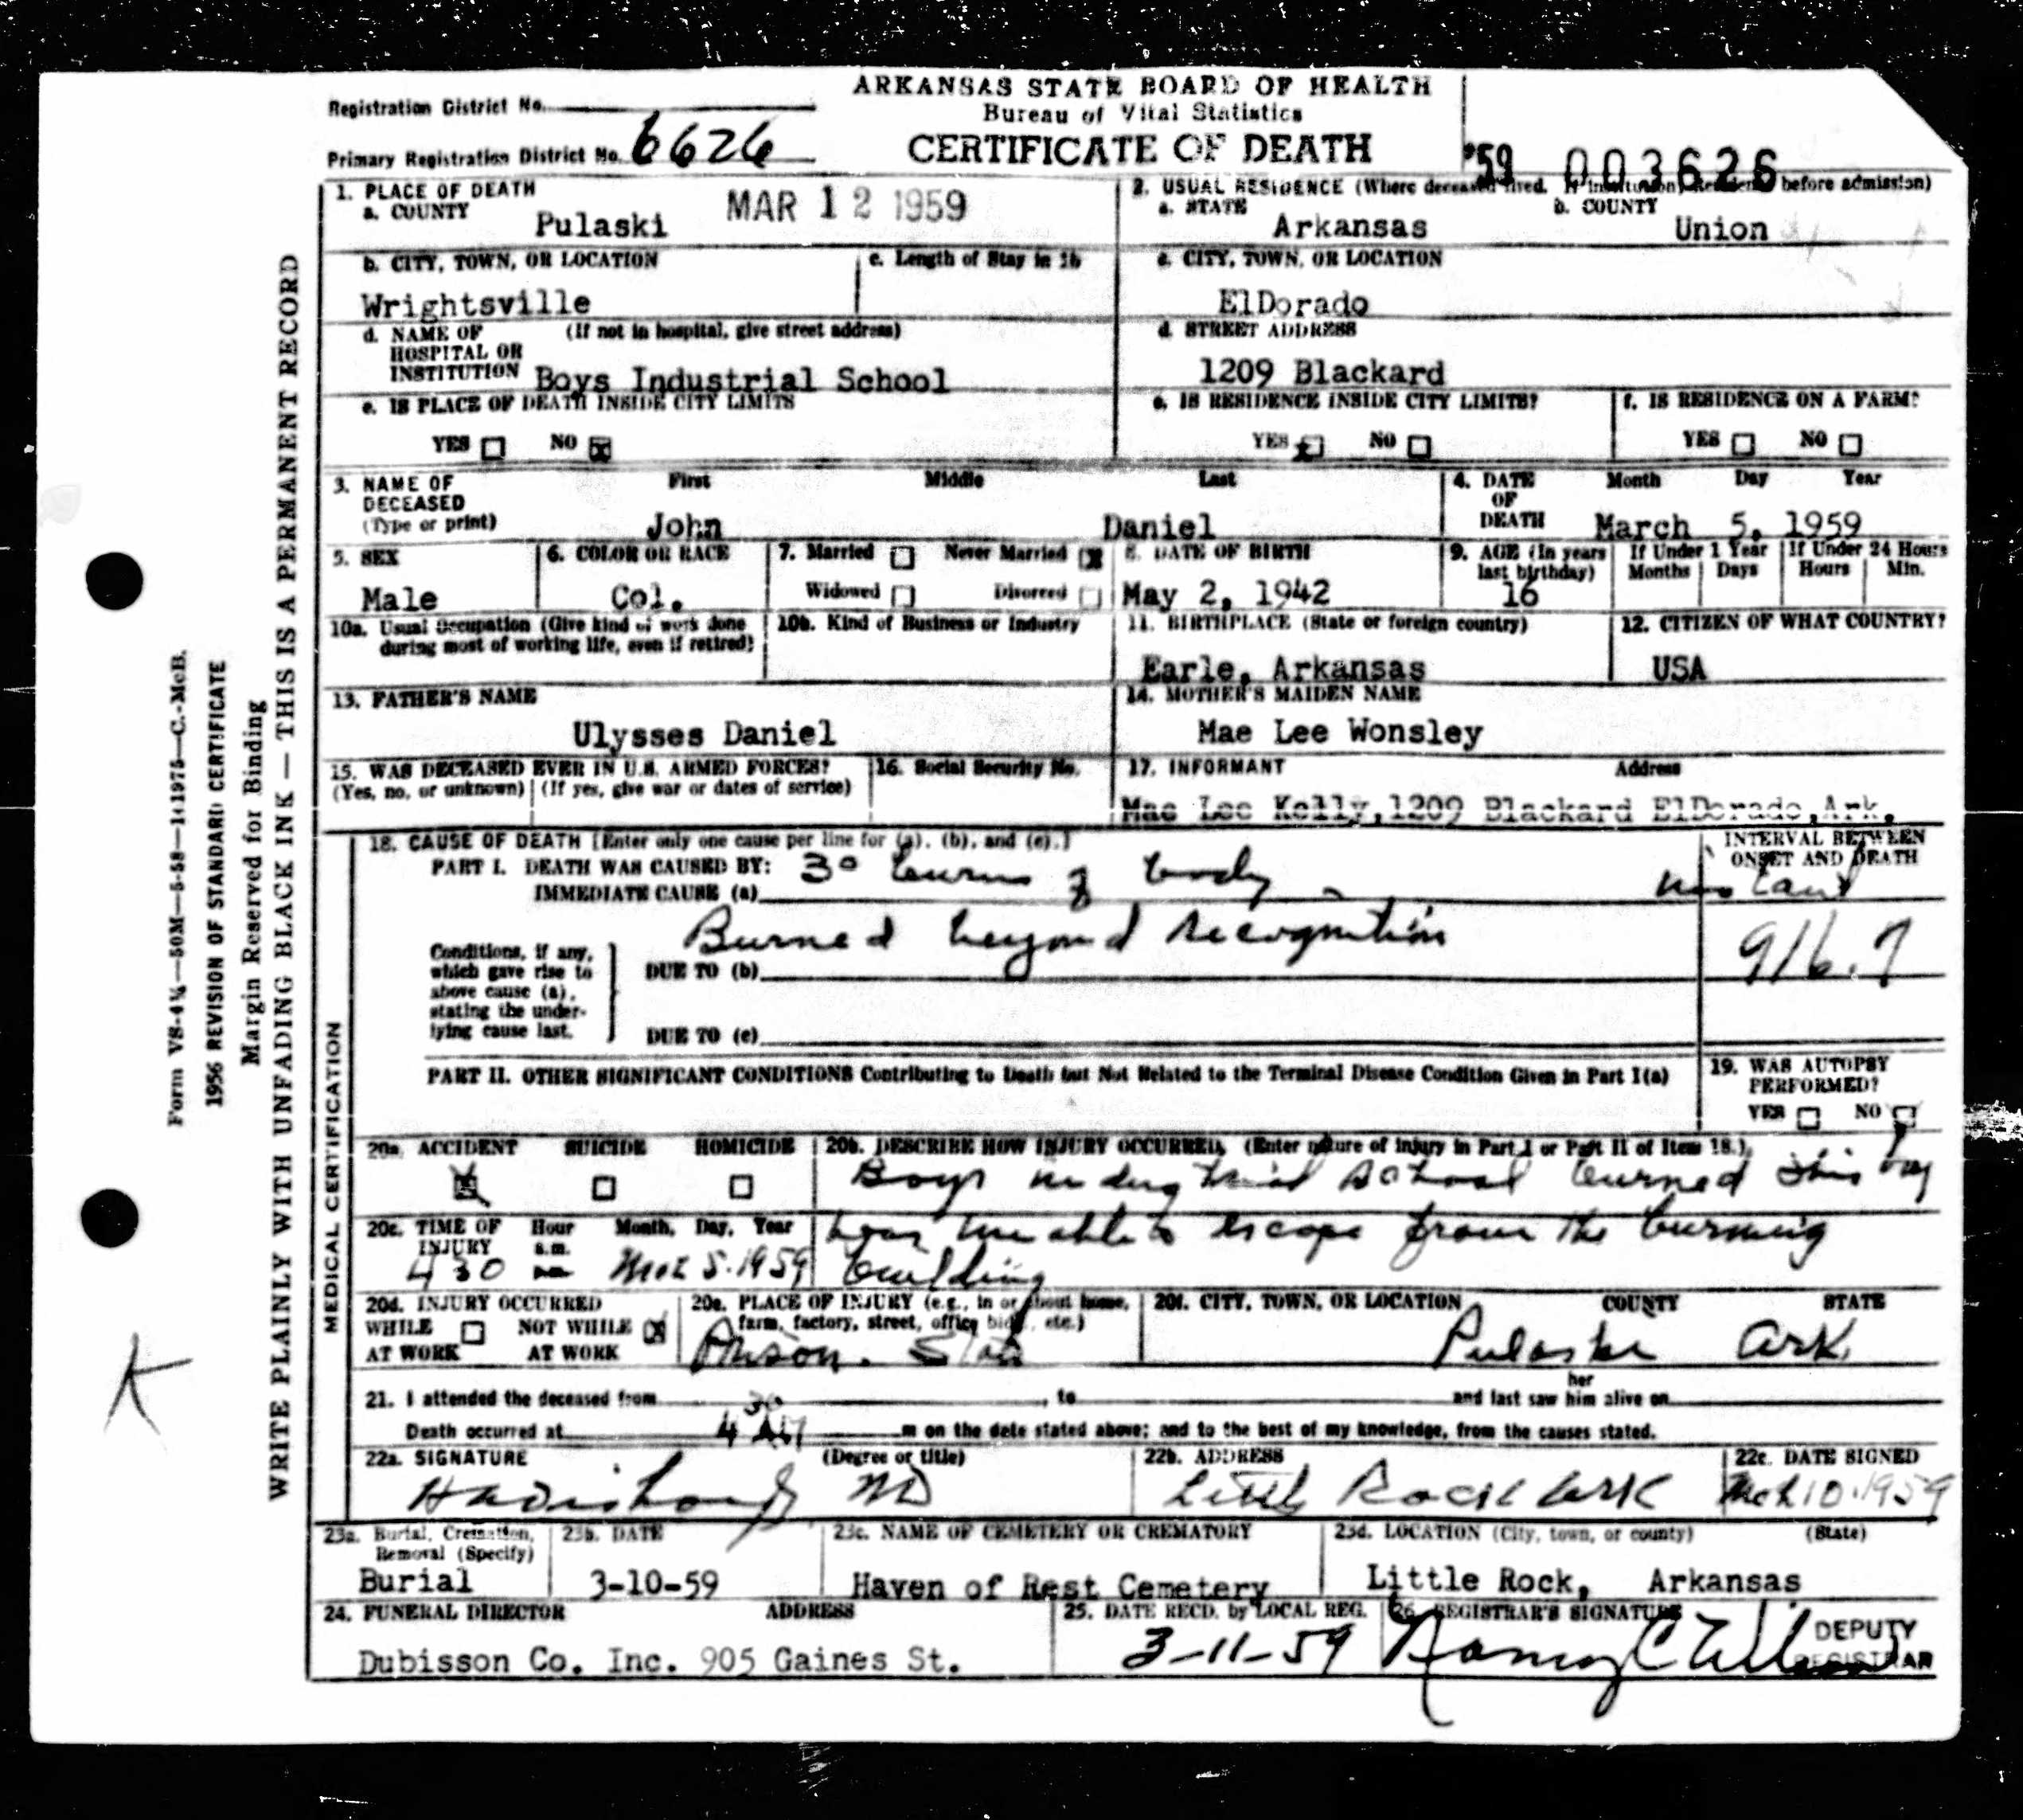 ARKANSAS STATE BOARD OF HEALTH
Bureau of Vital Statistics
CERTIFICATE OF DEATH
Registration District No.
Primary Registration District No. 6626
'59 003626
1. PLACE OF DEATH
a. COUNTY Pulaski
MAR 12 1959
2. USUAL RESIDENCE (Where deceased lived. If institution, Residence before admission)
a. STATE Arkansas b. COUNTY Union
b. CITY, TOWN, OR LOCATION Wrightsville
c. Length of Stay in 1b
c. CITY, TOWN, OR LOCATION ElDorado
d. NAME OF HOSPITAL OR INSTITUTION (If not in hospital, give street address) Boys Industrial School
d. STREET ADDRESS 1209 Blackard
e. IS PLACE OF DEATH INSIDE CITY LIMITS
YES NO
e. IS RESIDENCE INSIDE CITY LIMITS?
YES NO
f. IS RESIDENCE ON A FARM?
YES NO
3. NAME OF DECEASED (Type or print)
First Middle Last
John Daniel
4. DATE OF DEATH Month Day Year
March 5, 1959
5. SEX Male
6. COLOR OR RACE Col.
7. Married Never Married
Widowed Divorced
8. DATE OF BIRTH May 2, 1942
9. AGE (In years last birthday) 16
If Under 1 Year Months Days
If Under 24 Hours Hours Min.
10a. Usual Occupation (Give kind of work done during most of working life, even if retired)
10b. Kind of Business or Industry
11. BIRTHPLACE (State or foreign country) Earle, Arkansas
12. CITIZEN OF WHAT COUNTRY? USA
13. FATHER'S NAME Ulysses Daniel
14. MOTHER'S MAIDEN NAME Mae Lee Wonsley
15. WAS DECEASED EVER IN U.S. ARMED FORCES?
(Yes, no, or unknown) (If yes, give war or dates of service)
16. Social Security No.
17. INFORMANT Address
Mae Lee Kelly, 1209 Blackard ElDorado, Ark.
18. CAUSE OF DEATH [Enter only one cause per line for (a), (b), and (c).]
INTERVAL BETWEEN ONSET AND DEATH
PART I. DEATH WAS CAUSED BY:
IMMEDIATE CAUSE (a) 3° burns of body
Burned beyond recognition
916.7
Conditions, if any, which gave rise to above cause (a), stating the underlying cause last.
DUE TO (b)
DUE TO (c)
PART II. OTHER SIGNIFICANT CONDITIONS Contributing to Death but Not Related to the Terminal Disease Condition Given in Part I(a)
19. WAS AUTOPSY PERFORMED?
YES NO
20a. ACCIDENT SUICIDE HOMICIDE
20b. DESCRIBE HOW INJURY OCCURRED. (Enter nature of injury in Part I or Part II of Item 18.)
Boys industrial school burned this boy
was unable to escape from the burning
building
20c. TIME OF INJURY Hour a.m. Month, Day, Year
430 Mar 5. 1959
20d. INJURY OCCURRED
WHILE AT WORK NOT WHILE AT WORK
20e. PLACE OF INJURY (e.g., in or about home, farm, factory, street, office bldg., etc.)
Prison. State
20f. CITY, TOWN, OR LOCATION COUNTY STATE
Pulaski Ark.
21. I attended the deceased from , to and last saw her him alive on
Death occurred at 4 30 AM m on the date stated above; and to the best of my knowledge, from the causes stated.
22a. SIGNATURE (Degree or title)
MD
22b. ADDRESS Little Rock Ark
22c. DATE SIGNED Mch 10. 1959
23a. Burial, Cremation, Removal (Specify) Burial
23b. DATE 3-10-59
23c. NAME OF CEMETERY OR CREMATORY Haven of Rest Cemetery
23d. LOCATION (City, town, or county) (State)
Little Rock, Arkansas
24. FUNERAL DIRECTOR ADDRESS
Dubisson Co. Inc. 905 Gaines St.
25. DATE RECD. by LOCAL REG. 3-11-59
26. REGISTRAR'S SIGNATURE
DEPUTY REGISTRAR
MEDICAL CERTIFICATION
WRITE PLAINLY WITH UNFADING BLACK INK — THIS IS A PERMANENT RECORD
Margin Reserved for Binding
1956 REVISION OF STANDARD CERTIFICATE
K